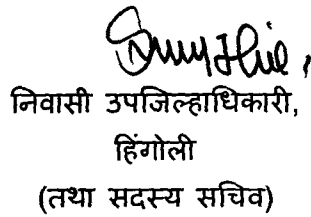 निवासी उपजिल्हाधिकारी,
हिंगोली
(तथा सदस्य सचिव)